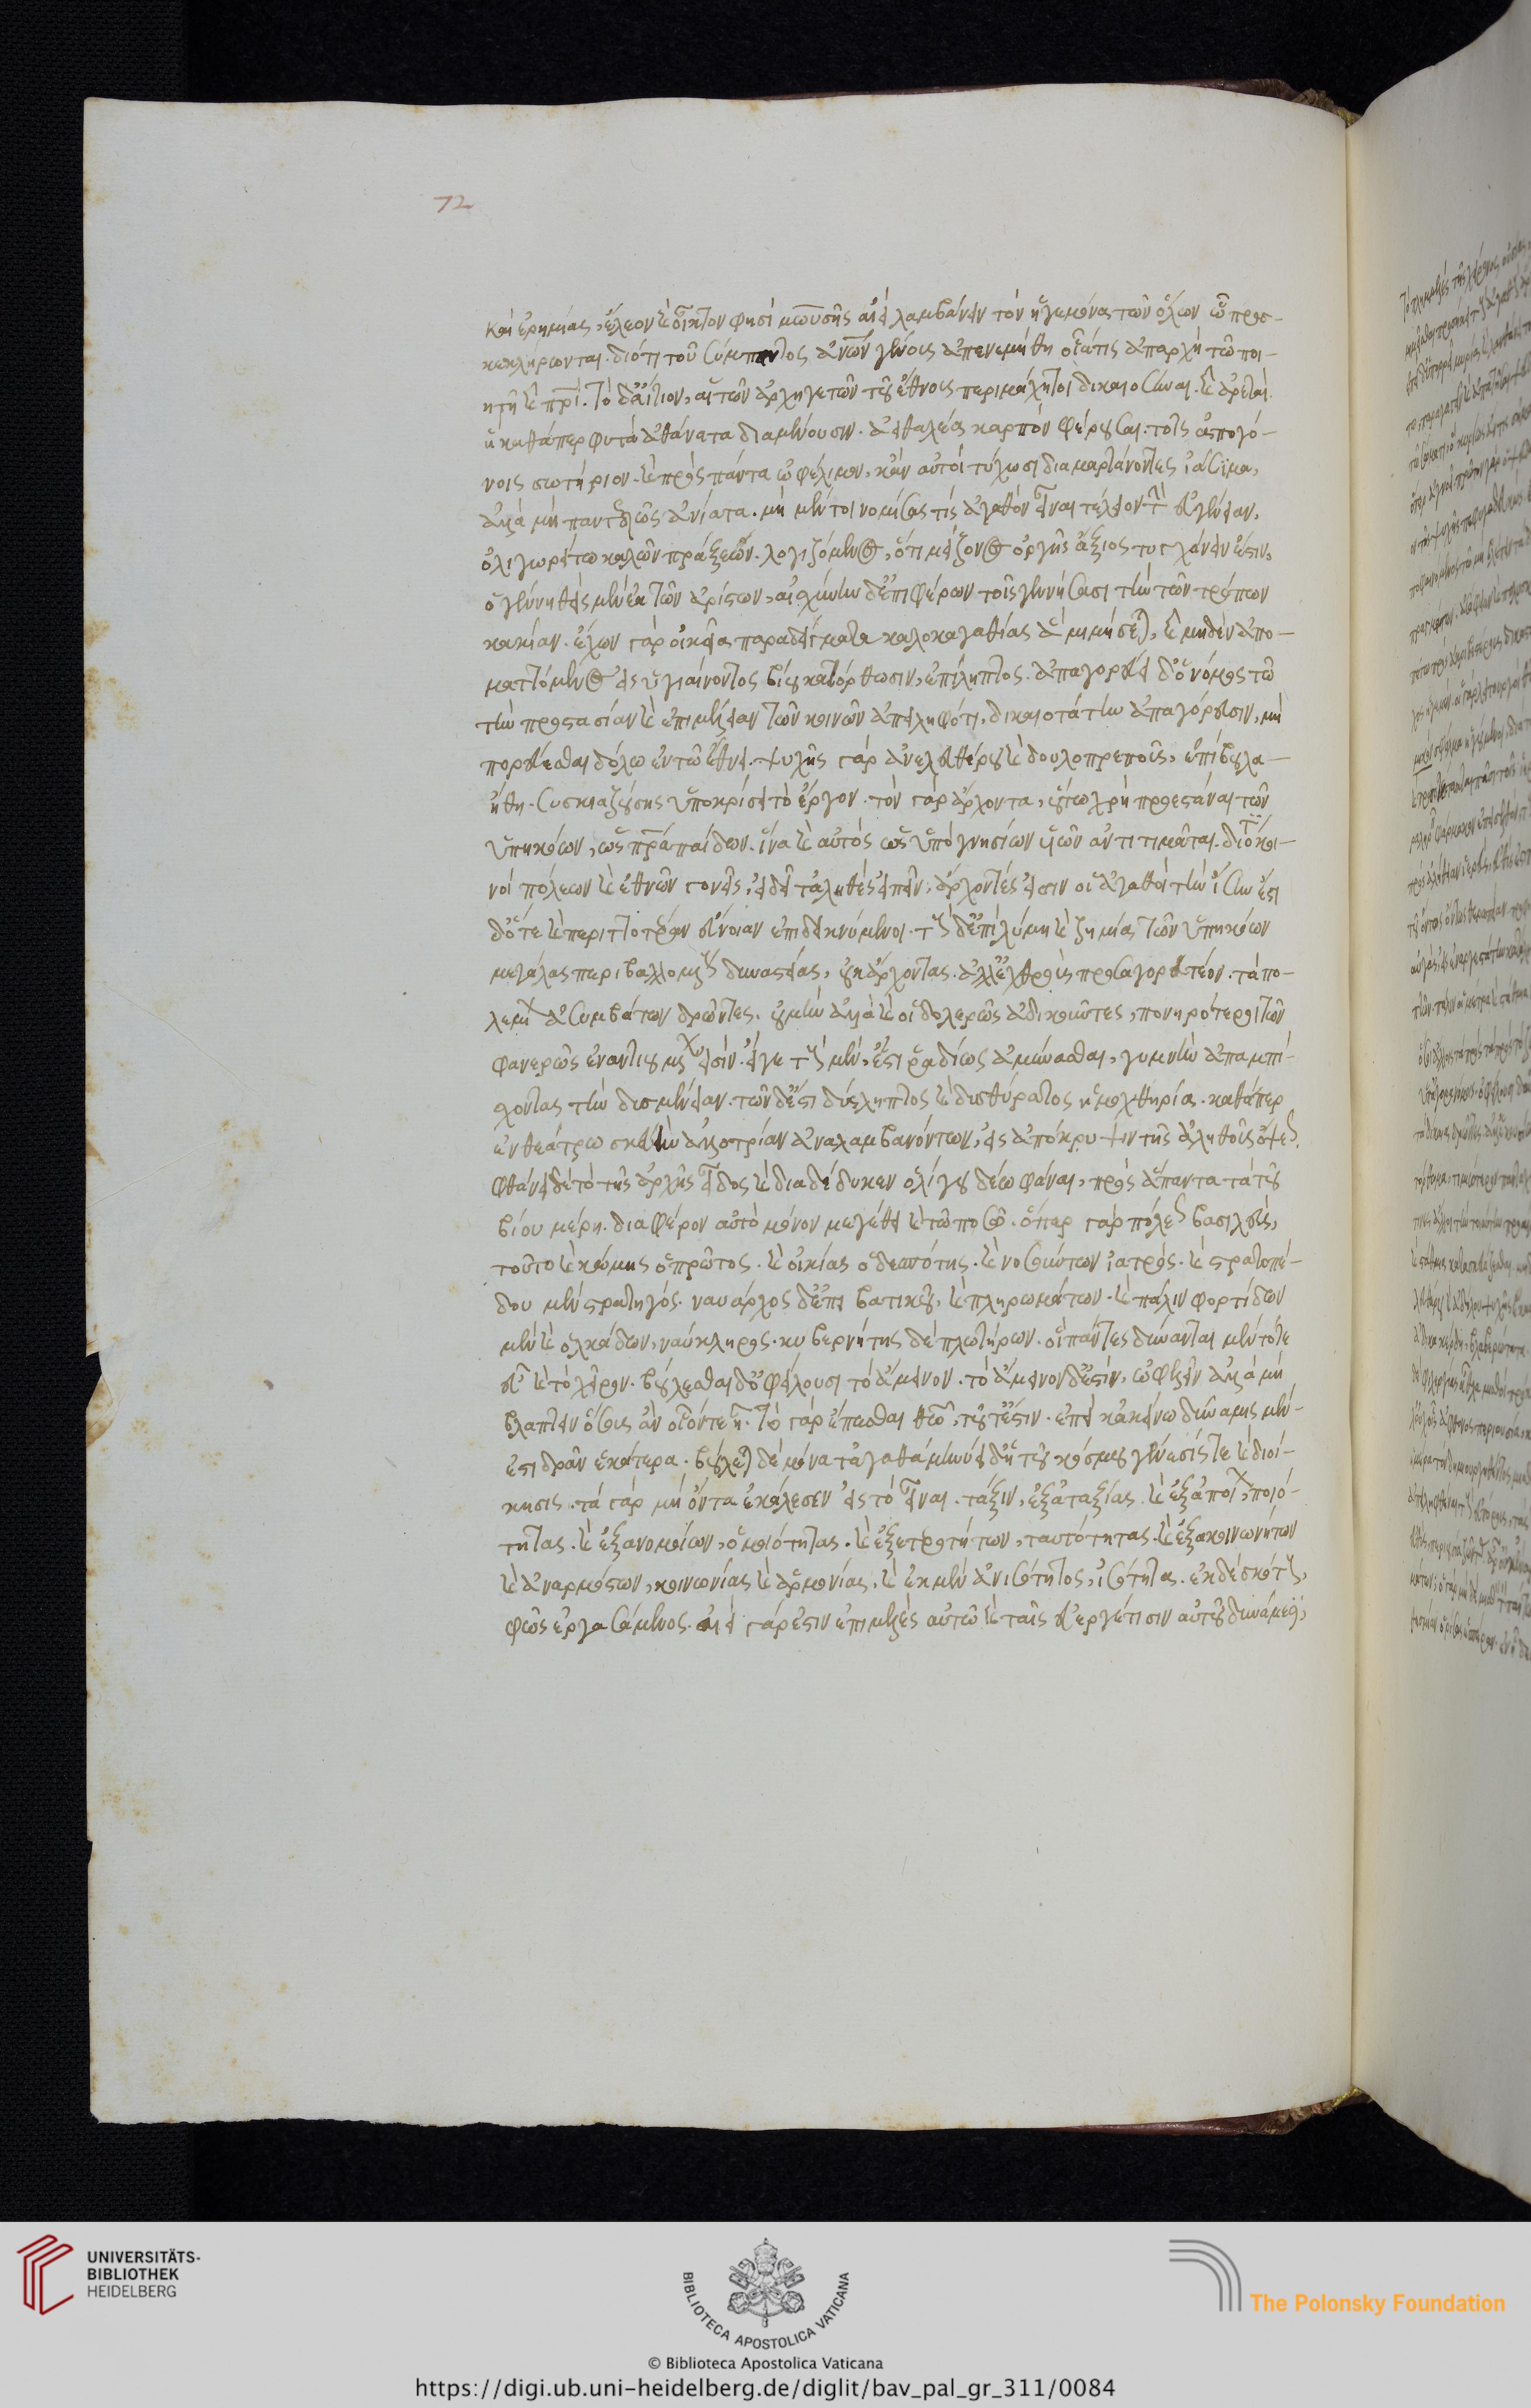 72
καὶ ἐρημίας, ἔλεον καὶ οἶκτον φησὶ μωυσῆς ἀεὶ λαμβάνειν τὸν ἡγεμόνα τῶν ὅλων ᾧ προσ-
κεκλήρωνται. διότι τοῦ σύμπαντος ἀνων γένους ἀπενεμήθη οἷά τις ἀπαρχὴ τῷ ποι-
ητῇ καὶ πρι. τὸ δ' αἴτιον, αἱ τῶν ἀρχηγετῶν τοῦ ἔθνους περιμάχητοι δικαιοσύναι. καὶ ἀρεταί.
αἳ καθάπερ φυτὰ ἀθάνατα διαμένουσιν. ἀειθαλέα καρπὸν φέρουσαι. τοῖς ἀπογό-
νοις σωτήριον. καὶ πρὸς πάντα ὠφέλιμον, κἂν αὐτοὶ τύχωσι διαμαρτάνοντες ἰάσιμα,
ἀλλὰ μὴ παντελῶς ἀνίατα. μὴ μέντοι νομίσας τις ἀγαθὸν εἶναι τέλειον τὴν εὐγένειαν,
ὀλιγωρείτω καλῶν πράξεων. λογιζόμενος, ὅτι μείζονος ὀργῆς ἄξιος τυγχάνειν ἐστιν,
ὁ γεννηθεὶς μὲν ἐκ τῶν ἀρίστων, αἰσχύνην δ' ἐπιφέρων τοῖς γεννήσασι τὴν τῶν τρόπων
κακίαν. ἔχων γὰρ οἰκεῖα παραδείγματα καλοκαγαθίας ἃ μιμήσεται, καὶ μηδὲν ἀπο-
ματτόμενος εἰς ὑγιαίνοντος βίου κατόρθωσιν, ἐπίληπτος. ἀπαγορεύει δ' ὁ νόμος τῷ
τὴν προστασίαν καὶ ἐπιμέλειαν τῶν κοινῶν ἀπειληφότι, δικαιοτάτην ἀπαγόρευσιν, μὴ
πορεύεσθαι δόλῳ ἐν τῷ ἔθνει. ψυχῆς γὰρ ἀνελευθέρου καὶ δουλοπρεποῦς, ἐπίβουλα
ἤθη. συσκιαζούσης ὑποκρίσει τὸ ἔργον. τὸν γὰρ ἄρχοντα, οὕτω χρὴ προεστάναι τῶν
ὑπηκόων, ὡς πρα παίδων. ἵνα καὶ αὐτὸς ὡς ὑπὸ γνησίων υἱῶν ἀντιτιμᾶται. διὸ κοι-
νοὶ πόλεων καὶ ἐθνῶν γονεῖς, εἰ δεῖ τἀληθὲς εἰπεῖν, ἄρχοντές εἰσιν οἱ ἀγαθοὶ τὴν ἴσην ἔστι
δ' ὅτε καὶ περιττοτέραν εὔνοιαν ἐπιδεικνύμενοι. τοὺς δ' ἐπὶ λύμῃ καὶ ζημίᾳ τῶν ὑπηκόων
μεγάλας περιβαλλομένους δυναστείας, οὐκ ἄρχοντας. ἀλλ' ἐχθροὺς προσαγορευτέον. τὰ πο-
λεμίων ἀσυμβάτων δρῶντες. οὐ μὴν ἀλλὰ καὶ οἱ δολερῶς ἀδικοῦντες, πονηρότεροι τῶν
φανερῶς ἐναντιουμένων εἰσίν. εἴγε τοὺς μὲν, ἔστι ῥᾳδίως ἀμύνασθαι, γυμνὴν ἀπαμπί-
σχοντας τὴν δυσμένειαν. τῶν δ' ἔστι δύσληπτος καὶ δυσθήρατος ἡ μοχθηρία. καθάπερ
ἐν θεάτρῳ σκευὴν ἀλλοτρίαν ἀναλαμβανόντων, εἰς ἀπόκρυψιν τῆς ἀληθοῦς ὄψεως.
φθάνει δὲ τὸ τῆς ἀρχῆς εἶδος καὶ διαδέδυκεν ὀλίγου δέω φάναι, πρὸς ἅπαντα τὰ τοῦ
βίου μέρη. διαφέρον αὐτὸ μόνον μεγέθει καὶ τῷ ποσῷ. ὅπερ γὰρ πόλεως βασιλεὺς,
τοῦτο καὶ κώμης ὁ πρῶτος. καὶ οἰκίας ὁ δεσπότης. καὶ νοσούντων ἰατρός. καὶ στρατοπέ-
δου μὲν στρατηγός. ναύαρχος δ' ἐπιβατικοῦ, καὶ πληρωμάτων. καὶ πάλιν φορτίδων
μὲν καὶ ὁλκάδων, ναύκληρος. κυβερνήτης δὲ πλωτήρων. οἳ πάντες δύνανται μὲν τότε
εὖ καὶ τὸ χεῖρον. βούλεσθαι δ' ὀφείλουσι τὸ ἄμεινον. τὸ ἄμεινον δ' ἐστὶν, ὠφελεῖν ἀλλὰ μὴ
βλάπτειν ὅσους ἂν οἷόν τε ᾖ. τὸ γὰρ ἕπεσθαι θεῷ, τοῦτ' ἔστιν. ἐπεὶ κἀκείνῳ δύναμις μέν
ἐστι δρᾶν ἑκάτερα. βούλεται δὲ μόνα τἀγαθά μηνύει δ' ἡ τοῦ κόσμου γένεσίς τε καὶ διοί-
κησις. τὰ γὰρ μὴ ὄντα ἐκάλεσεν εἰς τὸ εἶναι. τάξιν, ἐξ ἀταξίας. καὶ ἐξ ἀποίων, ποιό-
τητας. καὶ ἐξ ἀνομοίων, ὁμοιότητας. καὶ ἐξ ἑτεροτήτων, ταυτότητας. καὶ ἐξ ἀκοινωνήτων
καὶ ἀναρμόστων, κοινωνίας καὶ ἁρμονίας, καὶ ἐκ μὲν ἀνισότητος, ἰσότητα. ἐκ δὲ σκότους,
φῶς ἐργασάμενος. ἀεὶ γάρ ἐστιν ἐπιμελὲς αὐτῷ καὶ ταῖς εὐεργέτισιν αὐτοῦ δυνάμεσι,
UNIVERSITÄTS-
BIBLIOTHEK
HEIDELBERG
BIBLIOTECA APOSTOLICA VATICANA
The Polonsky Foundation
© Biblioteca Apostolica Vaticana
https://digi.ub.uni-heidelberg.de/diglit/bav_pal_gr_311/0084